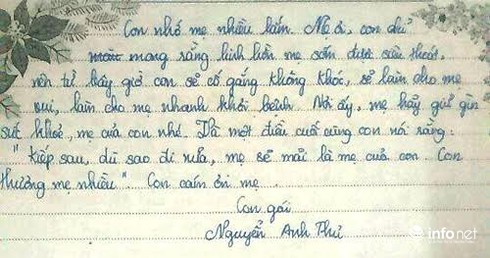 Con nhớ mẹ nhiều lắm. Mẹ ơi, con chỉ
mong rằng linh hồn mẹ sớm được siêu thoát,
nên từ bây giờ con sẽ cố gắng không khóc, sẽ làm cho mẹ
vui, làm cho mẹ nhanh khỏi bệnh. Nơi ấy, mẹ hãy giữ gìn
sức khoẻ, mẹ của con nhé. Và một điều cuối cùng con nói rằng:
"Kiếp sau, dù sao đi nữa, mẹ sẽ mãi là mẹ của con. Con
thương mẹ nhiều". Con cám ơn mẹ.
Con gái
Nguyễn Anh Thư
infonet